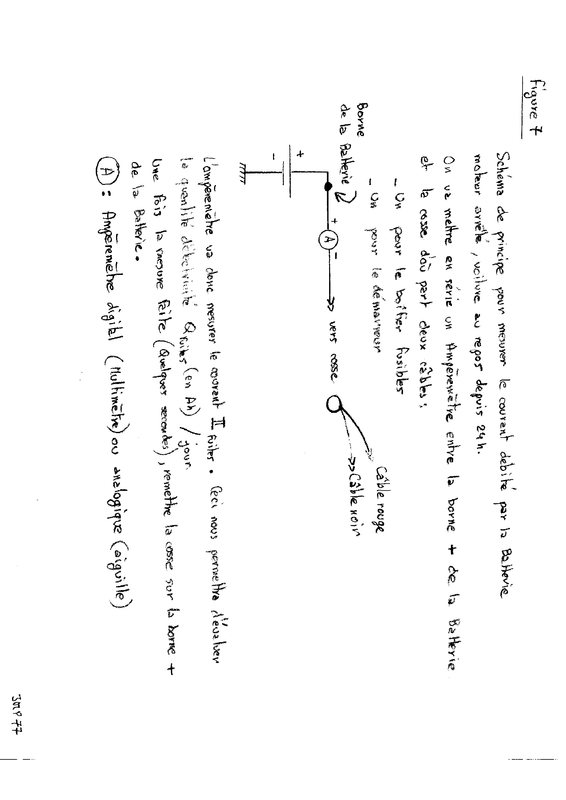 Figure 7
Schéma de principe pour mesurer le courant débité par la Batterie
moteur arrêté, voiture au repos depuis 24h.
On va mettre en série un Ampèremètre entre la borne + de la Batterie
et la cosse d'où part deux câbles :
- Un pour le boîtier fusibles
- Un pour le démarreur
Borne
de la Batterie
+
-
+
A
-
vers cosse
Câble rouge
Câble noir
L'ampèremètre va donc mesurer le courant I fuites. Ceci nous permettra d'évaluer
la quantité d'électricité Q fuites (en Ah) / jour.
Une fois la mesure faite (Quelques secondes), remettre la cosse sur la borne +
de la Batterie.
A : Ampèremètre digital (Multimètre) ou analogique (aiguille)